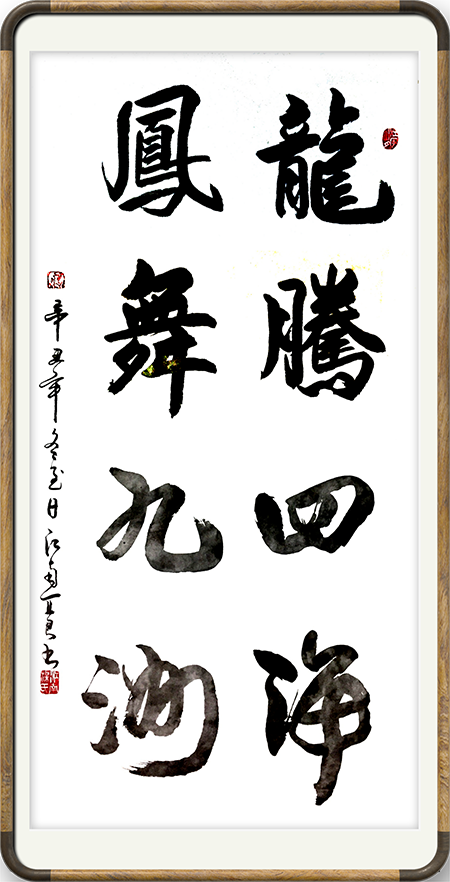 龍騰四海
鳳舞九洲
辛丑年冬至日江南